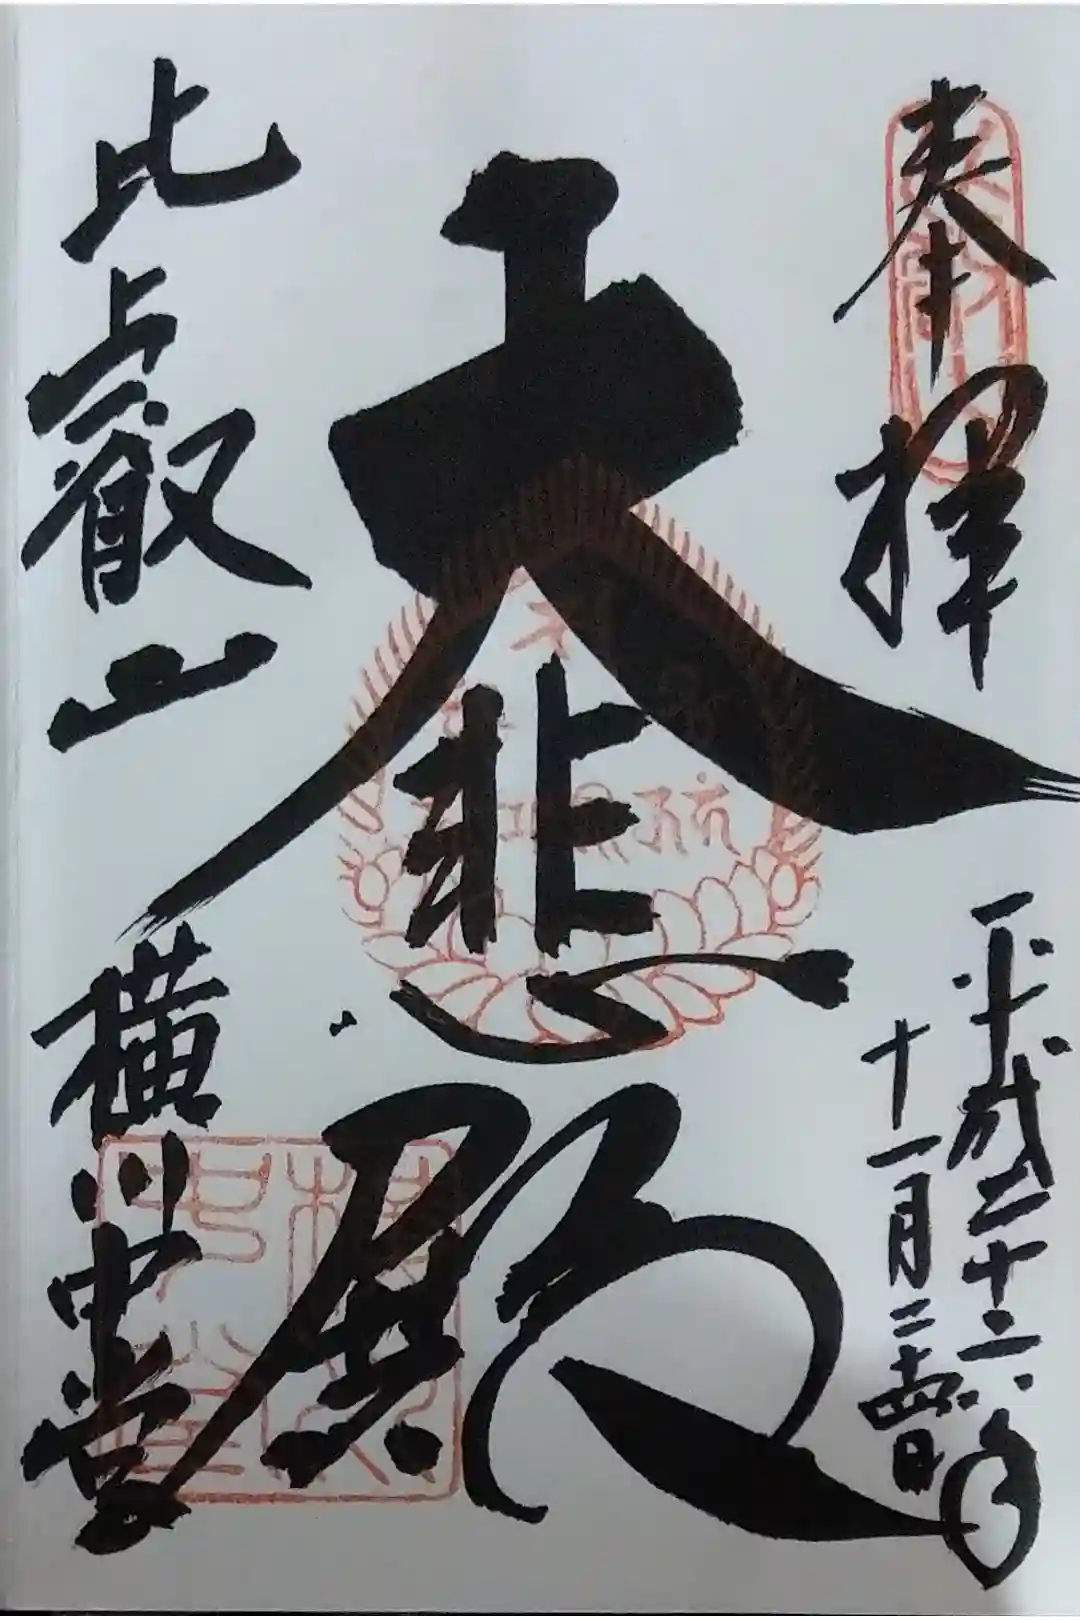 奉拝
平成二十六年
十一月二十四日
大悲殿
比叡山
横川中堂
横川
中堂